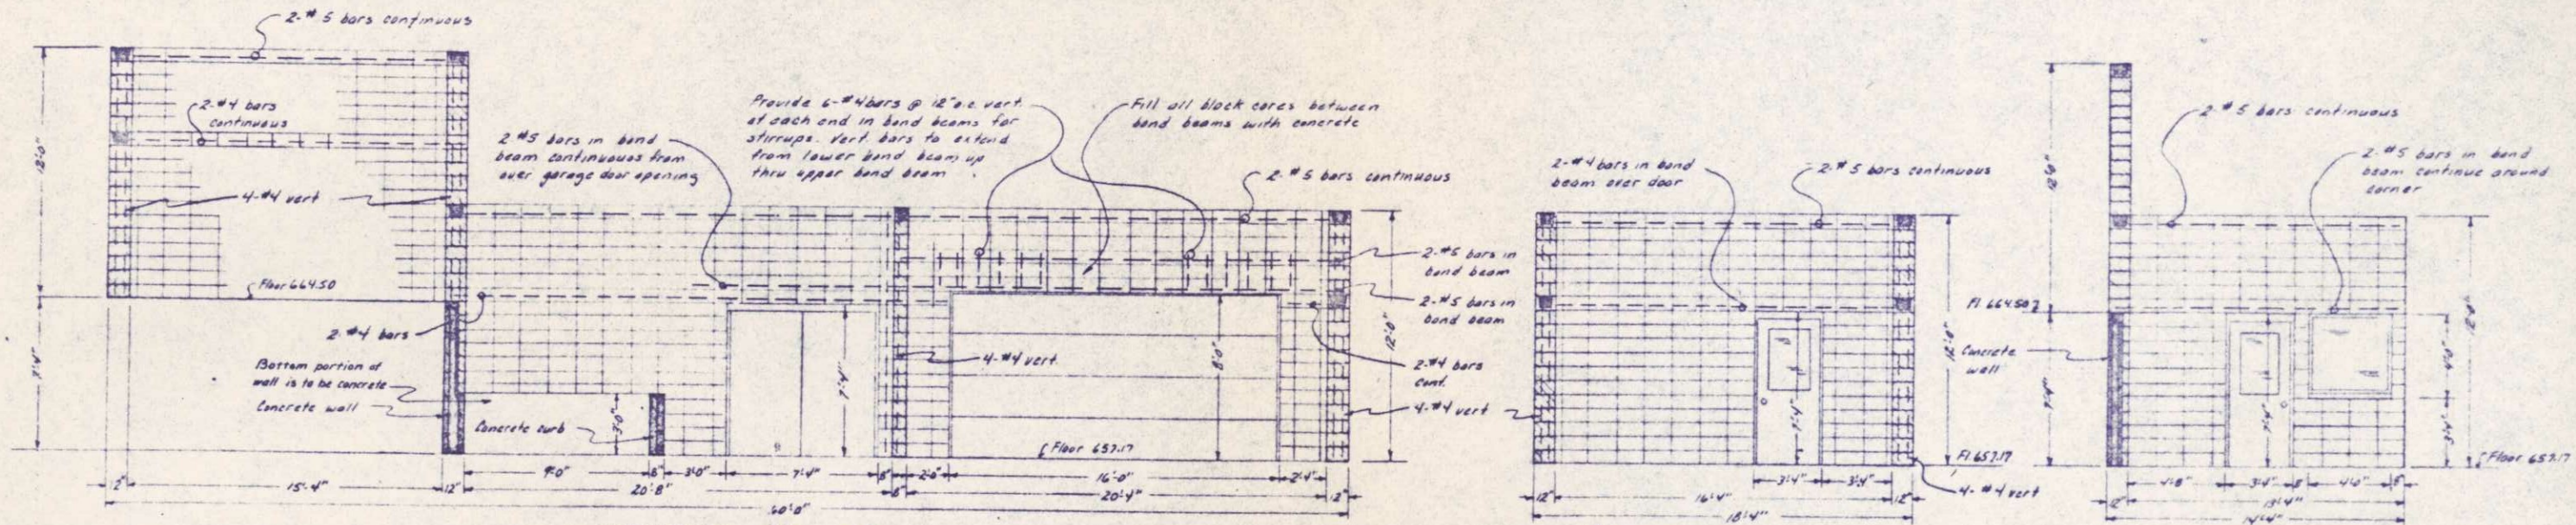 2-#5 bars continuous
2-#4 bars
continuous
12'-0"
4-#4 vert
Floor 664.50
7'-4"
2-#4 bars
Bottom portion of
wall is to be concrete
Concrete wall
2 #5 bars in bond
beam continuous from
over garage door opening
Provide 6-#4 bars @ 12" o.c. vert.
at each end in bond beams for
stirrups. Vert. bars to extend
from lower bond beam up
thru upper bond beam
Fill all block cores between
bond beams with concrete
2-#5 bars continuous
2-#5 bars in
bond beam
2-#5 bars in
bond beam
12'-0"
2-#4 bars
cont.
4-#4 vert
4-#4 vert.
Concrete curb
3'-0"
7'-4"
8'-0"
Floor 657.17
9'-0"
8"
3'-0"
7'-4"
8"
2'-0"
16'-0"
2'-4"
12"
15'-4"
12"
20'-8"
8"
20'-4"
12"
60'-0"
2-#4 bars in bond
beam over door
2-#5 bars continuous
12'-0"
7'-4"
Fl. 657.17
4-#4 vert
3'-4"
3'-4"
12"
16'-4"
12"
18'-4"
2-#5 bars continuous
2-#5 bars in bond
beam continue around
corner
Fl. 664.50
Concrete
wall
7'-4"
7'-4"
12'-0"
4'-0"
3'-4"
Floor 657.17
4'-8"
3'-4"
8"
4'-0"
8"
12"
13'-4"
14'-4"